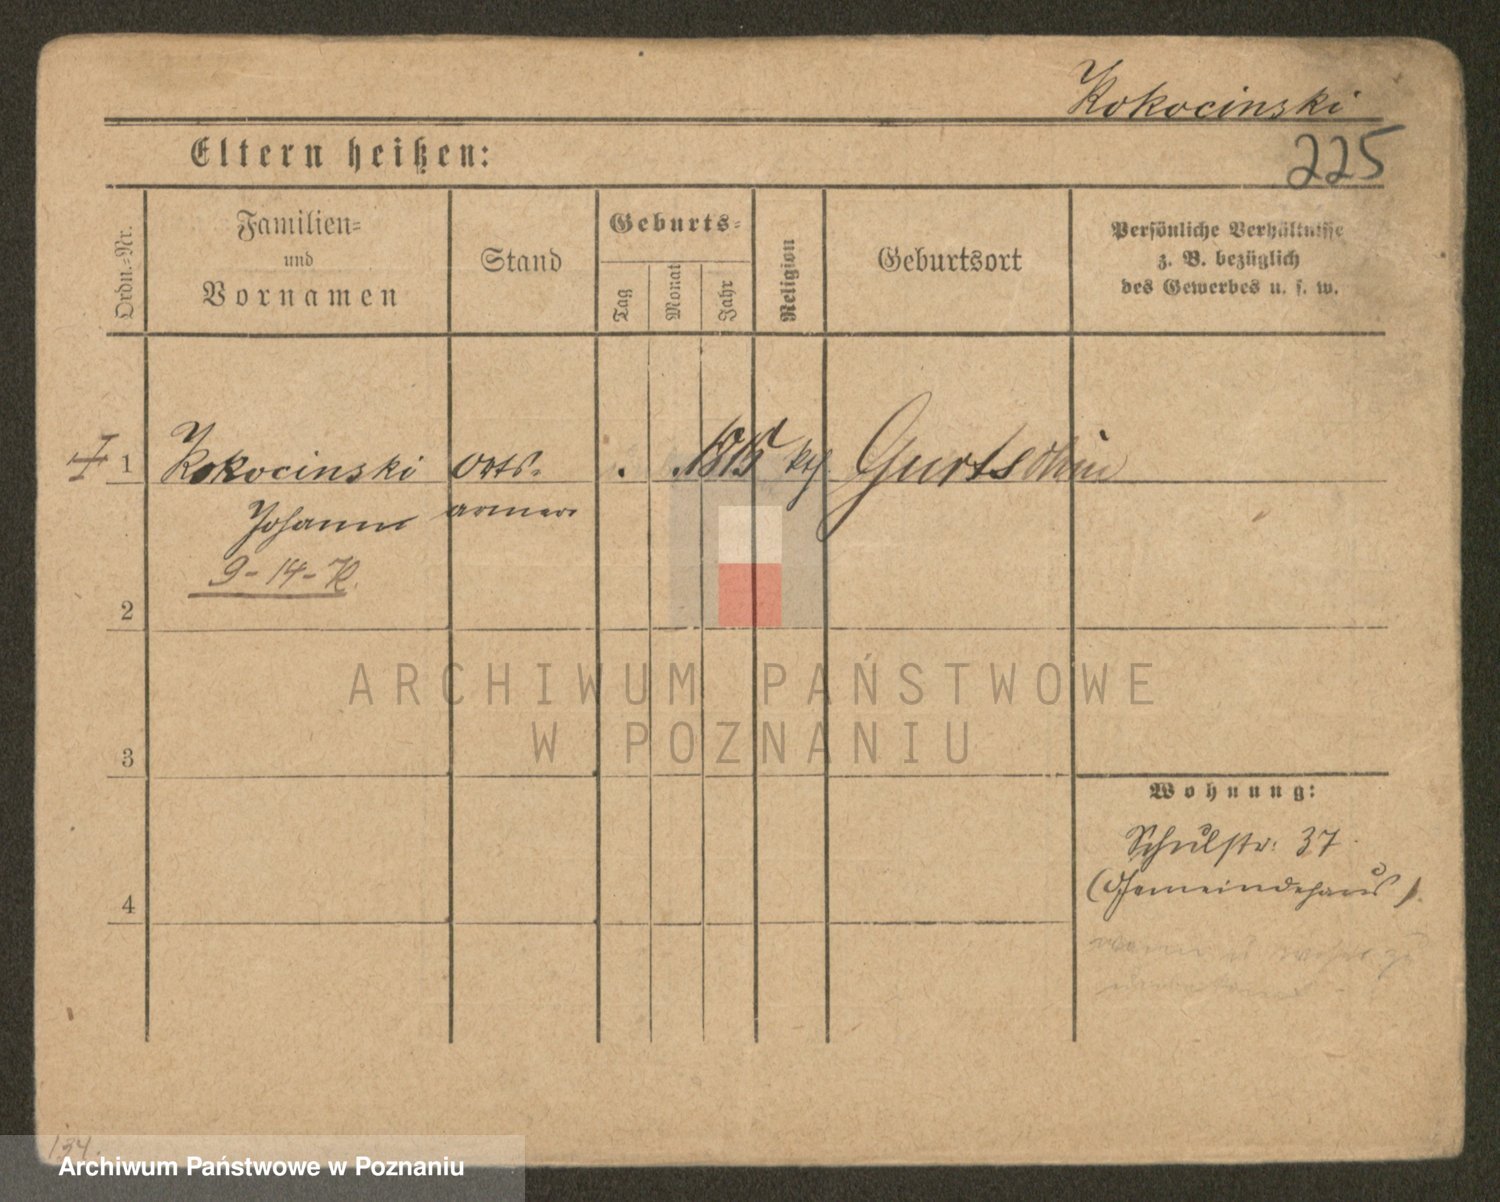 Kokocinski
Eltern heißen:
225
Ordn.-Nr.
Familien-
und
Vornamen
Stand
Geburts-
Tag
Monat
Jahr
Religion
Geburtsort
Persönliche Verhältnisse
z. B. bezüglich
des Gewerbes u. s. w.
1 Kokocinski Orts- 1815 kth Gurtschin
Johann armer
9-14-
2
3
4
Wohnung:
Schulstr. 37
(Gemeindehaus).
134.
ARCHIWUM PAŃSTWOWE
W POZNANIU
Archiwum Państwowe w Poznaniu